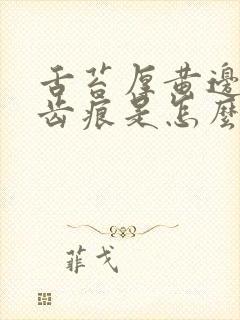 舌苔厚黄邊
齿痕是怎麼
菲戈